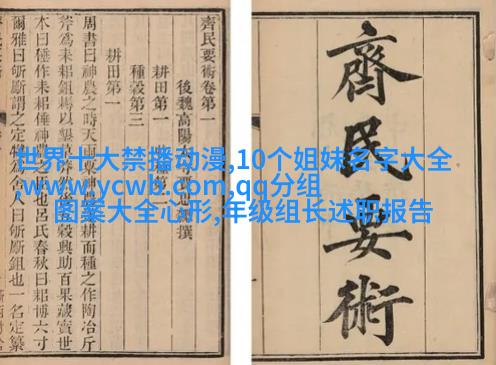 齊民要術
齊民要術卷第一
後魏高陽撰
耕田第一
種穀第三
耕田第一
周書曰神農之時天雨粟神耕而種之作陶冶斤
斧爲耒耜鉏耨以墾草穀興助百果藏實世
本曰倕作耒耜倕神農之也呂氏春秋曰耜博六寸
爾雅曰斪斸謂之定舍人曰斪斸鉏也一名定纂
世界十大禁播动漫,10个姐妹名字大全
www.ycwb.com,qq分组
图案大全心形,年级组长述职报告